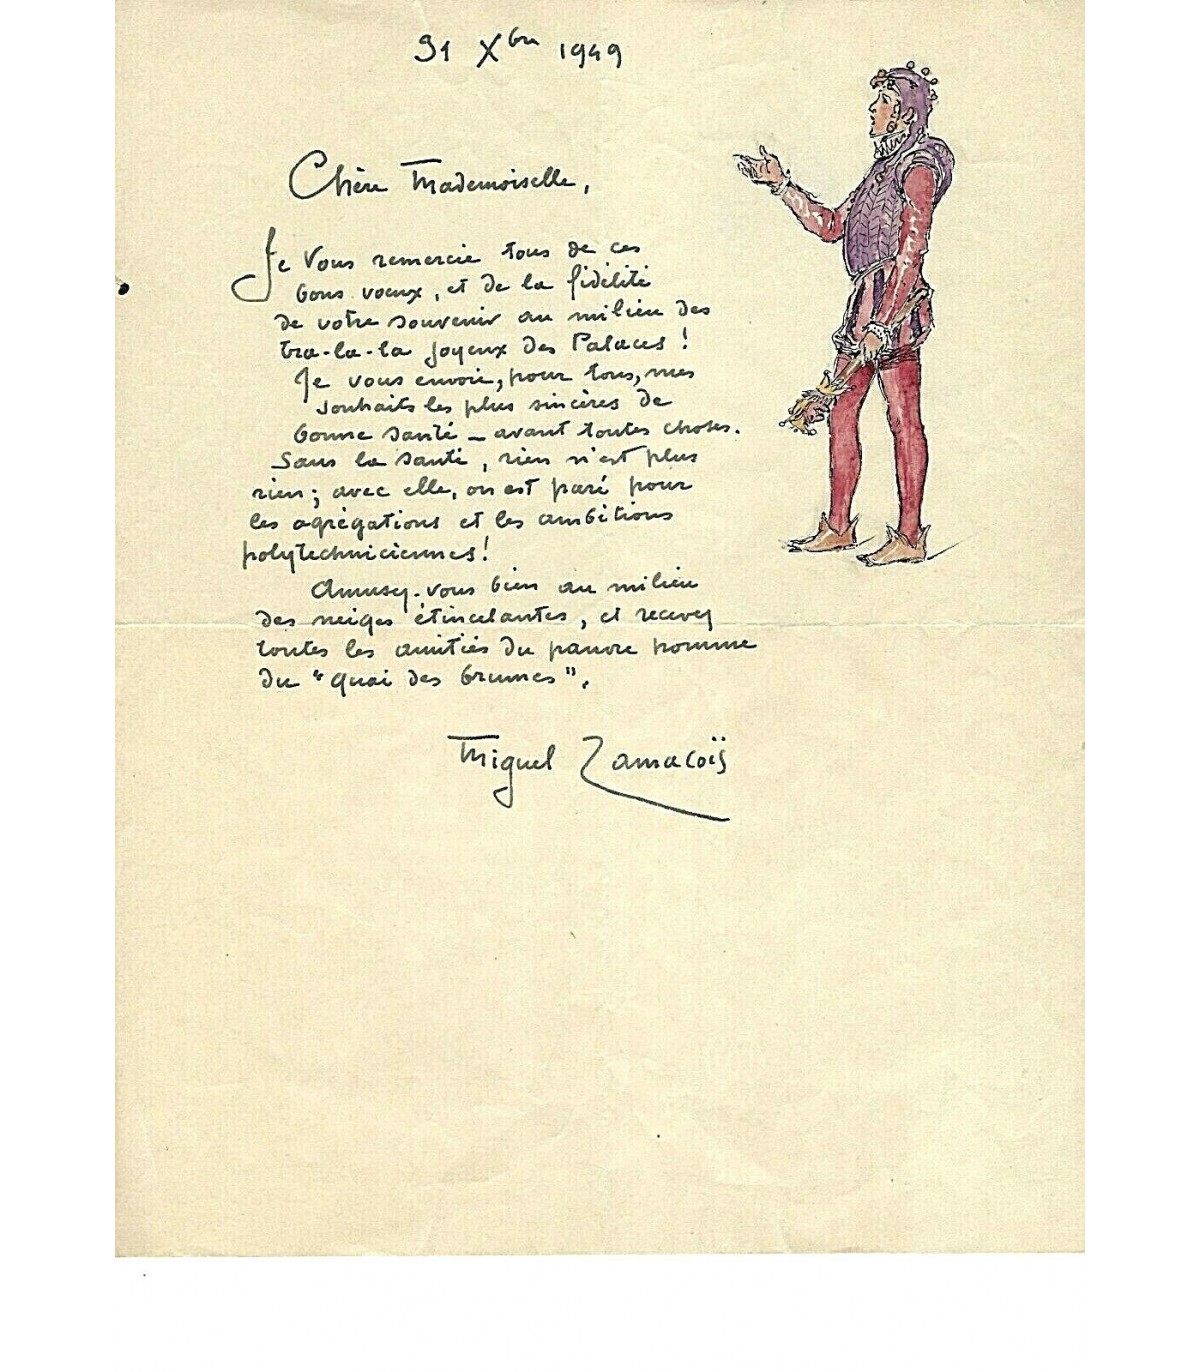 31 Xbre 1949
Chère Mademoiselle,
Je vous remercie tous de ces
bons vœux, et de la fidélité
de votre souvenir au milieu des
tra-la-la joyeux des Palaces !
Je vous envoie, pour tous, mes
souhaits les plus sincères de
bonne santé – avant toutes choses.
Sans la santé, rien n'est plus
rien ; avec elle, on est paré pour
les agrégations et les ambitions
polytechniciennes !
Amusez-vous bien au milieu
des neiges étincelantes, et recevez
toutes les amitiés du pauvre homme
du "quai des brumes".
Miguel Zamacoïs